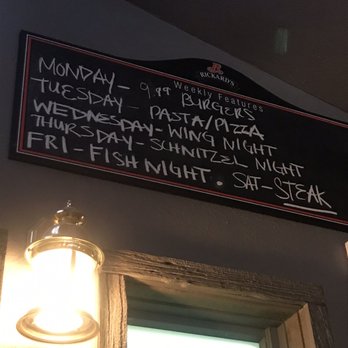 RICKARD'S
Weekly Features
MONDAY- 9.99 BURGERS
TUESDAY- PASTA/PIZZA
WEDNESDAY- WING NIGHT
THURSDAY- SCHNITZEL NIGHT
FRI-FISH NIGHT. SAT-STEAK